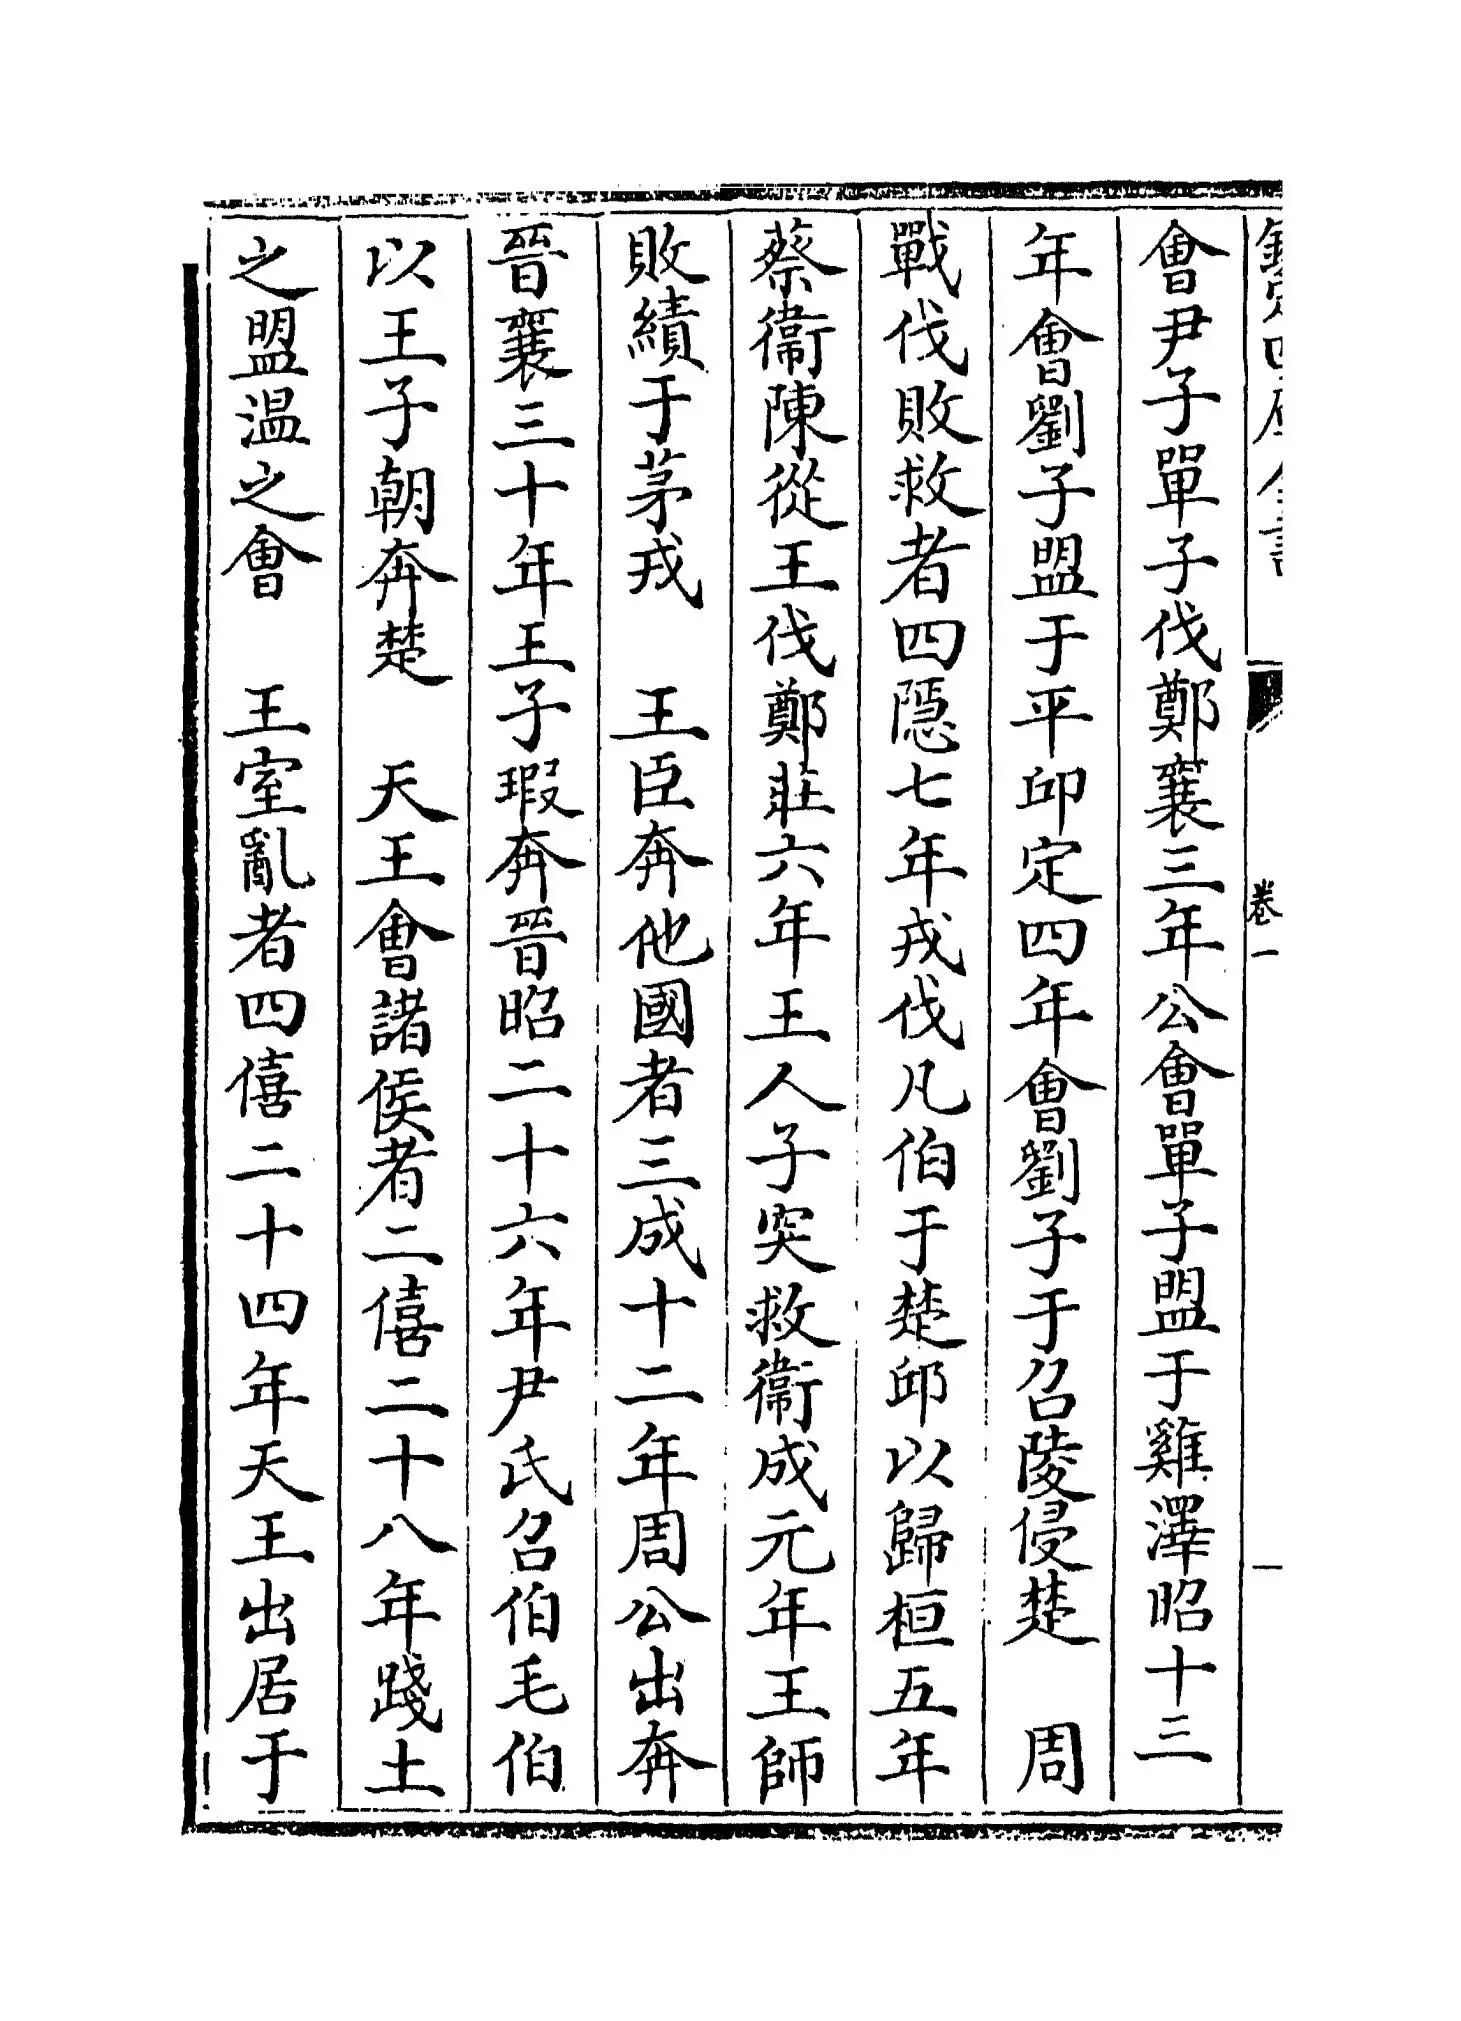 欽定四庫全書
卷一
會尹子單子伐鄭襄三年公會單子盟于雞澤昭十三
年會劉子盟于平邱定四年會劉子于召陵侵楚　周
戰伐敗救者四隱七年戎伐凡伯于楚邱以歸桓五年
蔡衞陳從王伐鄭莊六年王人子突救衞成元年王師
敗績于茅戎　王臣奔他國者三成十二年周公出奔
晉襄三十年王子瑕奔晉昭二十六年尹氏召伯毛伯
以王子朝奔楚　天王會諸侯者二僖二十八年踐土
之盟温之會　王室亂者四僖二十四年天王出居于